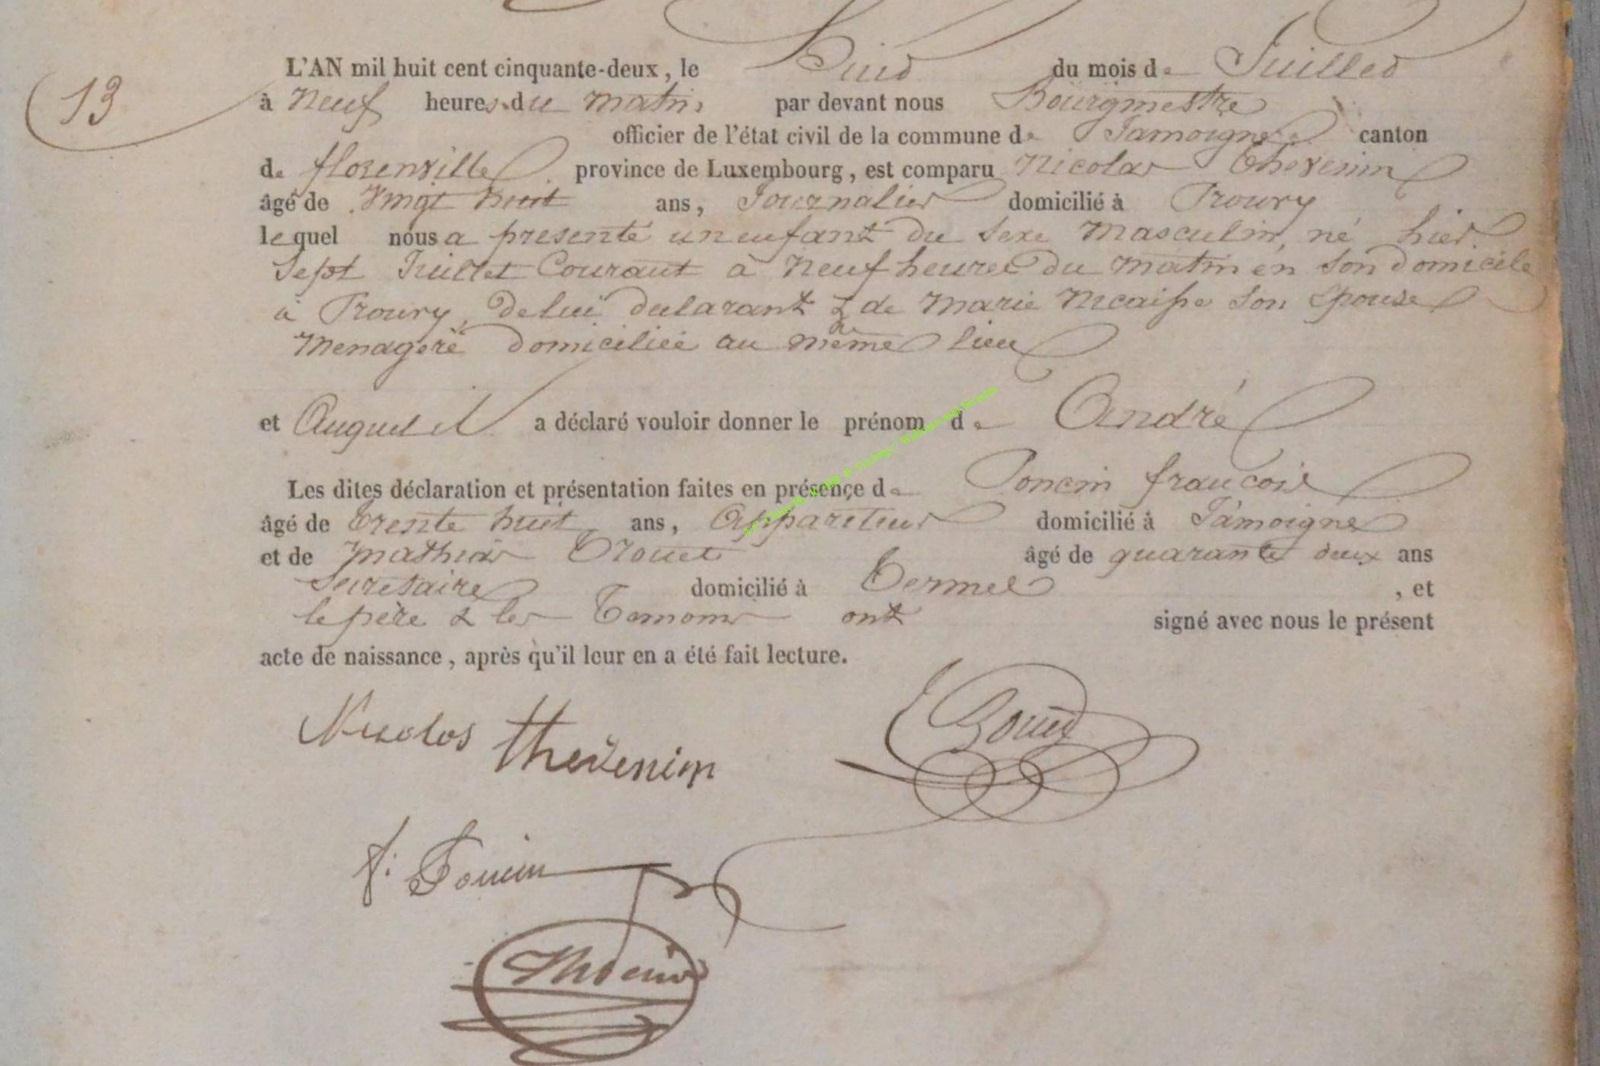 13
L'AN mil huit cent cinquante-deux, le huit du mois de Juillet
à Neuf heures du matin par devant nous Bourgmestre
officier de l'état civil de la commune de Jamoigne canton
de florenville province de Luxembourg, est comparu Nicolas Thévenin
âgé de Vingt huit ans, Journalier domicilié à Prouvy
lequel nous a présenté un enfant du Sexe Masculin, né hier
Sept Juillet Courant à Neuf heures du matin en son domicile
à Prouvy, de lui déclarant & de Marie Nicaisse son Epouse
Menagère domiciliée au même lieu
et Auquel il a déclaré vouloir donner le prénom de André
Les dites déclaration et présentation faites en présence de Poncin françois
âgé de trente huit ans, Appariteur domicilié à Jamoigne
et de Mathias Trouet âgé de quarante deux ans
Secretaire domicilié à Termes, et
le père & les Temoins ont signé avec nous le présent
acte de naissance, après qu'il leur en a été fait lecture.
Nicolas thevenin
f: Poncin